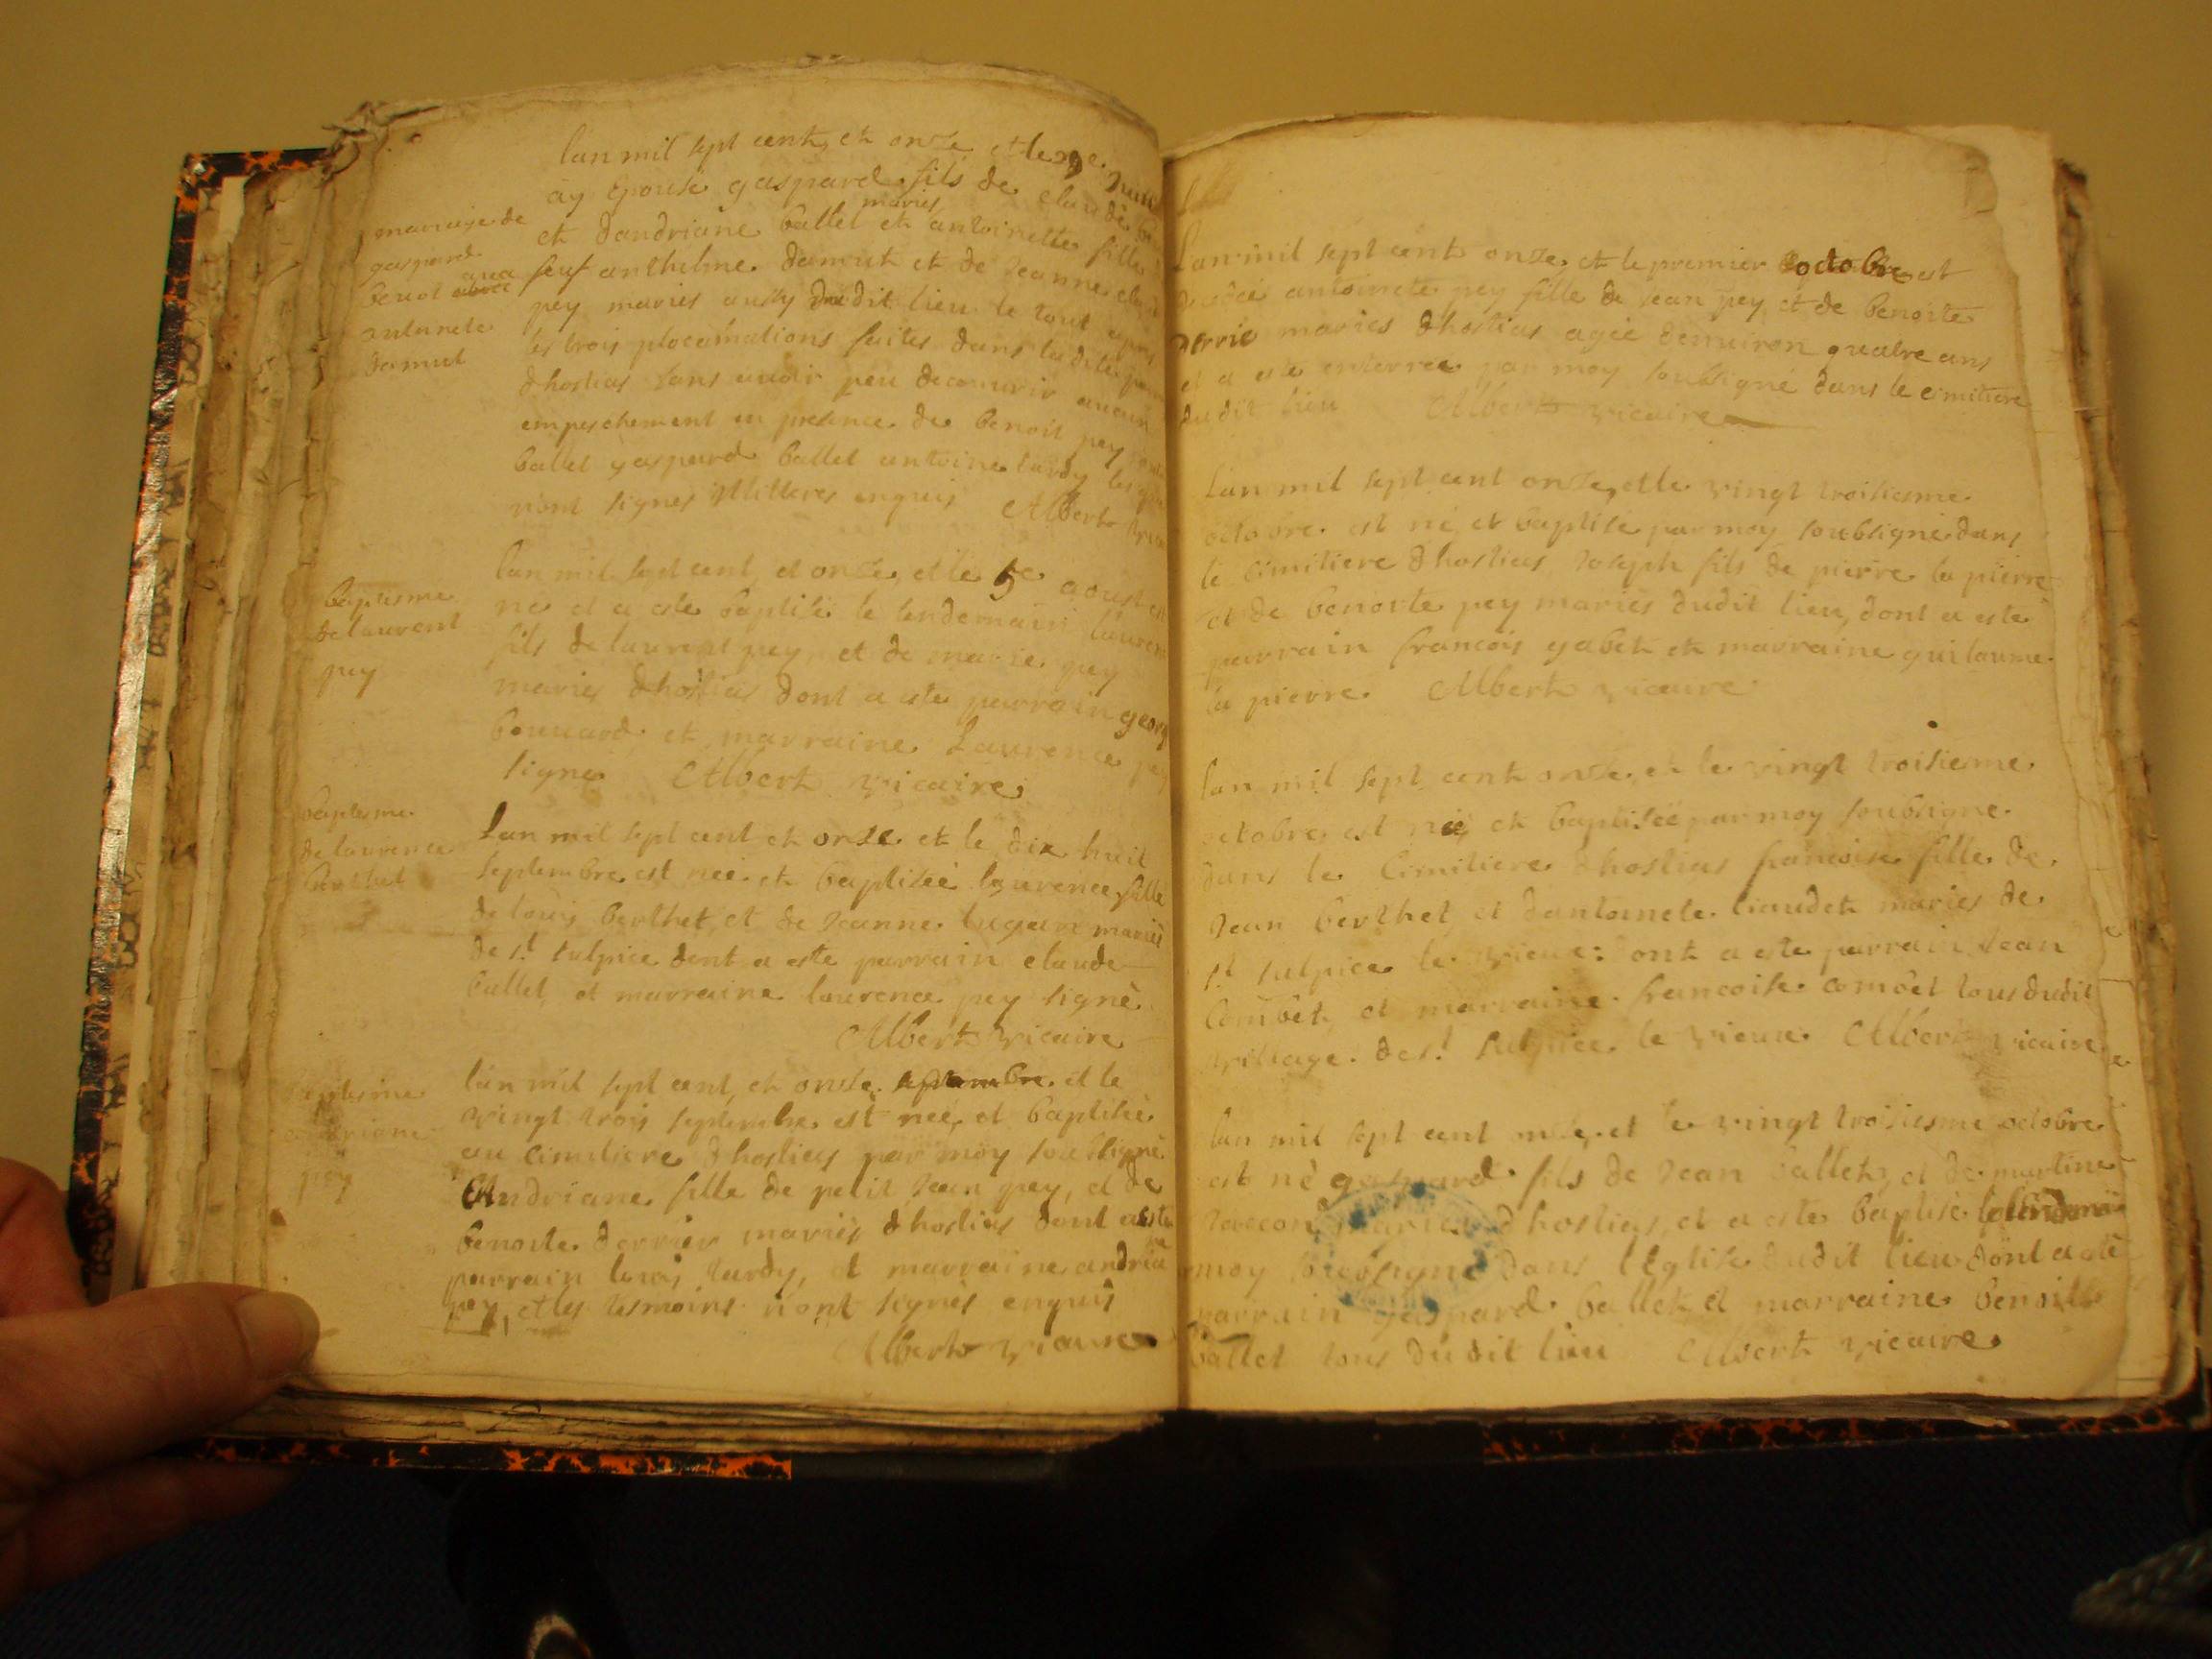 lan mil sept cent et onze et le
ay Epousé gaspard fils de claude
maries
et dandriane ballet et antoinette fille
feuf anthelme damut et de Jeanne
pey maries aussy dudit lieu le tout apres
les trois plocamations faites dans ladite
dhostias sans avoir peu decouvrir aucun
empeschement en presence de benoit pey
ballet gaspard ballet antoine tardy les
nont signes illitteres enquis Albert
mariage de
gaspard
benot avec
antoinete
damut
lan mil sept cent et onze et le 5e aoust est
né et a este baptisé le lendemain laurent
fils de laurent pey et de marie pey
maries dhostias dont a este parrain
bouvard et marraine Laurence pey
signe Albert vicaire
baptesme
de laurent
pey
Lan mil sept cent et onze et le dix huit
septembre est neé et baptiseé laurence fille
de louis berthet et de Jeanne lugan mariés
de st sulpice dont a este parrain claude
ballet et marraine laurence pey signé
Albert vicaire
baptesme
de laurence
berthet
lan mil sept cent et onze septembre et le
vingt trois septembre est neé et baptiseé
au cimitiere dhostias par moy soubsigné
Andriane fille de petit Jean pey, et de
benoite derrier mariés dhostias dont a este
parrain louis tardy, et marraine
pey, et les tesmoins nont signés enquis
Albert vicaire
baptesme
andriane
pey
Lan mil sept cent onze et le premier octobre est
decedeé antoinete pey fille de Jean pey et de benoite
derrie maries dhostias ageé denuiron quatre ans
et a este enterreé par moy soubsigné dans le cimitiere
dudit lieu Albert vicaire
Lan mil sept cent onze, et le vingt troisiesme
octobre est né et baptisé par moy soubsigné dans
le cimitiere dhostias Joseph fils de pierre la pierre
et de benoite pey mariés dudit lieu, dont a este
parrain francois gabet et marraine guilaume
la pierre Albert vicaire
lan mil sept cent onze et le vingt troisieme
octobre est neé et baptiseé par moy soubsigne
dans le Cimitiere dhostias francoise fille de
Jean berthet et dantoinete liaudet maries de
st sulpice le vieux: dont a este parrain Jean
Combet et marraine francoise combet tous dudit
village de st sulpice le vieux Albert vicaire
lan mil sept cent onze et le vingt troisiesme octobre
est né gaspard fils de Jean ballet, et de martine
maries dhostias, et a este baptisé
moy soubsigné dans lEglise dudit lieu dont a este
parrain gaspard ballet et marraine benoite
ballet tous dudit lieu Albert vicaire